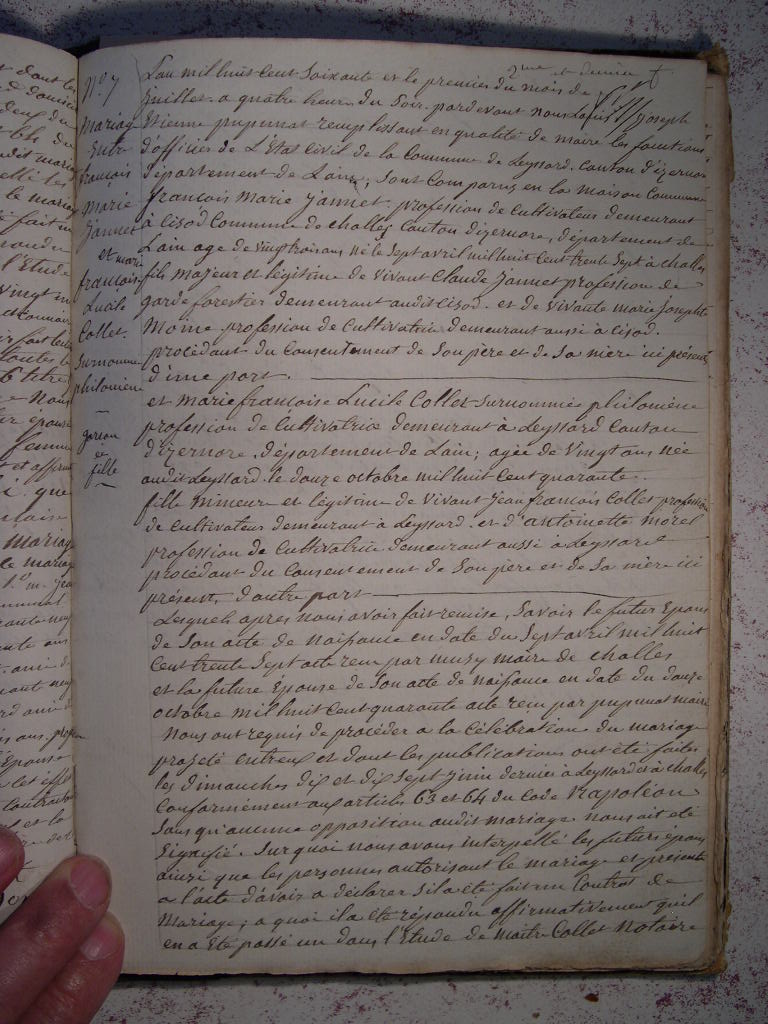 2me et dernier f
No. 7
Mariage
Entre
françois
Marie
Jannet
et marie
françoise
Lucile
Collet.
Surnommée
philomène
garçon
et
fille
L'an mil huit Cent Soixante et le premier du mois de
Juillet. a quatre heures du Soir. pardevant nous Joseph
Etienne pupunat remplissant en qualité de maire les fonctions
d'officier de L'Etat Civil de la Commune de Leyssard. Canton d'izernore
département de Lain, Sont Comparus en la maison Commune
françois Marie Jannet. profession de Cultivateur demeurant
à Cisod Commune de challes Canton dizernore, département de
Lain age de vingt trois ans né le Sept avril mil huit Cent trente Sept à challes
fils majeur et légitime de vivant Claude Jannet profession de
garde forestier demeurant audit Cisod. et de vivante marie Josephte
Moine profession de Cultivatrice demeurant aussi à Cisod.
procédant du Consentement de Son père et de Sa mère ici présents
d'une part.
et Marie françoise Lucile Collet Surnommée philomène
profession de Cultivatrice demeurant à Leyssard Canton
dizernore, département de Lain; agée de Vingt ans née
audit Leyssard. le douze octobre mil huit Cent quarante.
fille mineure et légitime de Vivant Jean françois Collet profession
de Cultivateur demeurant à Leyssard. et d'antoinette Morel
profession de Cultivatrice demeurant aussi à Leyssard
procédant du Consentement de Son père et de Sa mère ici
présent, d'autre part
Lesquels après nous avoir fait remise, Savoir le futur Epoux
de Son acte de naissance en date du Sept avril mil huit
Cent trente Sept acte reçu par muzy maire de challes
et la future Epouse de Son acte de naissance en date du douze
octobre mil huit Cent quarante acte reçu par pupunat maire
Nous ont requis de procéder a la Célébration du mariage
projeté entreux et dont les publications ont été faites
les Dimanches Dix et Dix Sept Juin dernier à Leyssard et à challes
Conformément aux articles 63 et 64 du Code Napoléon
Sans qu'aucune opposition audit mariage nous ait été
Signifié. Sur quoi nous avons interpellé les futurs époux
ainsi que les personnes autorisant le mariage et présente
a l'acte d'avoir a déclarer S'il a été fait un Contrat de
Mariage; a quoi il a été répondu affirmativement qu'il
en a été passé un dans l'Etude de maître Collet Notaire